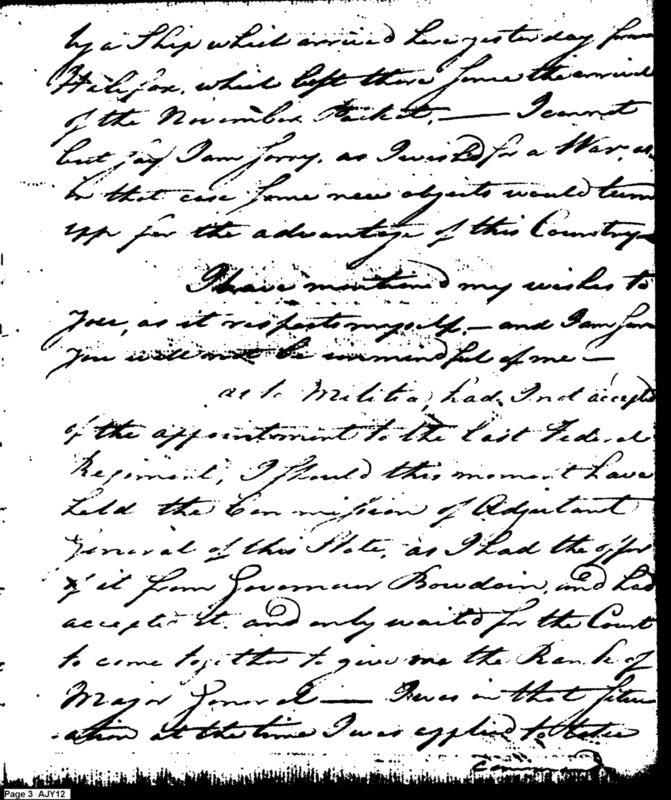 by a Ship which arrived here yesterday from
Halifax, which left there since the arrival
of the November Packet, — I cannot
but say I am sorry, as I wished for a War, as
in that case some new objects would turn
upp for the advantage of this Country —
I have mentioned my wishes to
you, as it respects myself, — and I am sure
you will not be unmindful of me —
as to Militia, had I not accepted
of the appointment to the last Federal
Regiment, I should this moment have
held the Commission of Adjutant
General of this State, as I had the offer
of it from Governour Bowdoin, and had
accepted it. and only waited for the Court
to come together to give me the Rank of
Major General — I was in that situ
-ation at the time I was applied to take
command
Page 3 AJY12